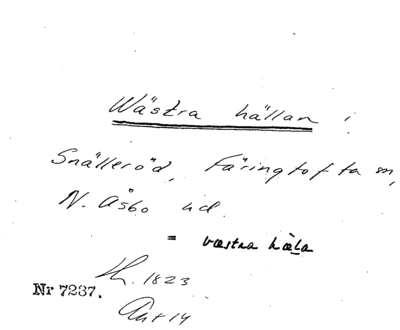 Wästra hällan
Snälleröd, Färingtofta sn,
N. Åsbo hd.
= væstra hæla
H. 1823
Nr 7237.
Akt 14